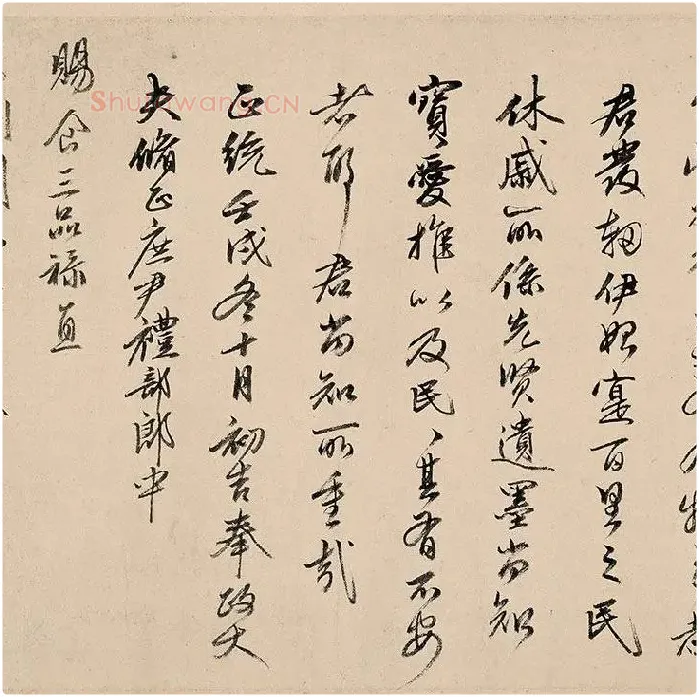 君發軔伊始寔百里之民
休戚所係先賢遺墨尚知
寶愛推以及民〻其有不安
者耶君尚知所重哉
正統壬戌冬十月初吉奉政大
夫脩正庶尹禮部郎中
賜食三品祿直
Shufawang.CN